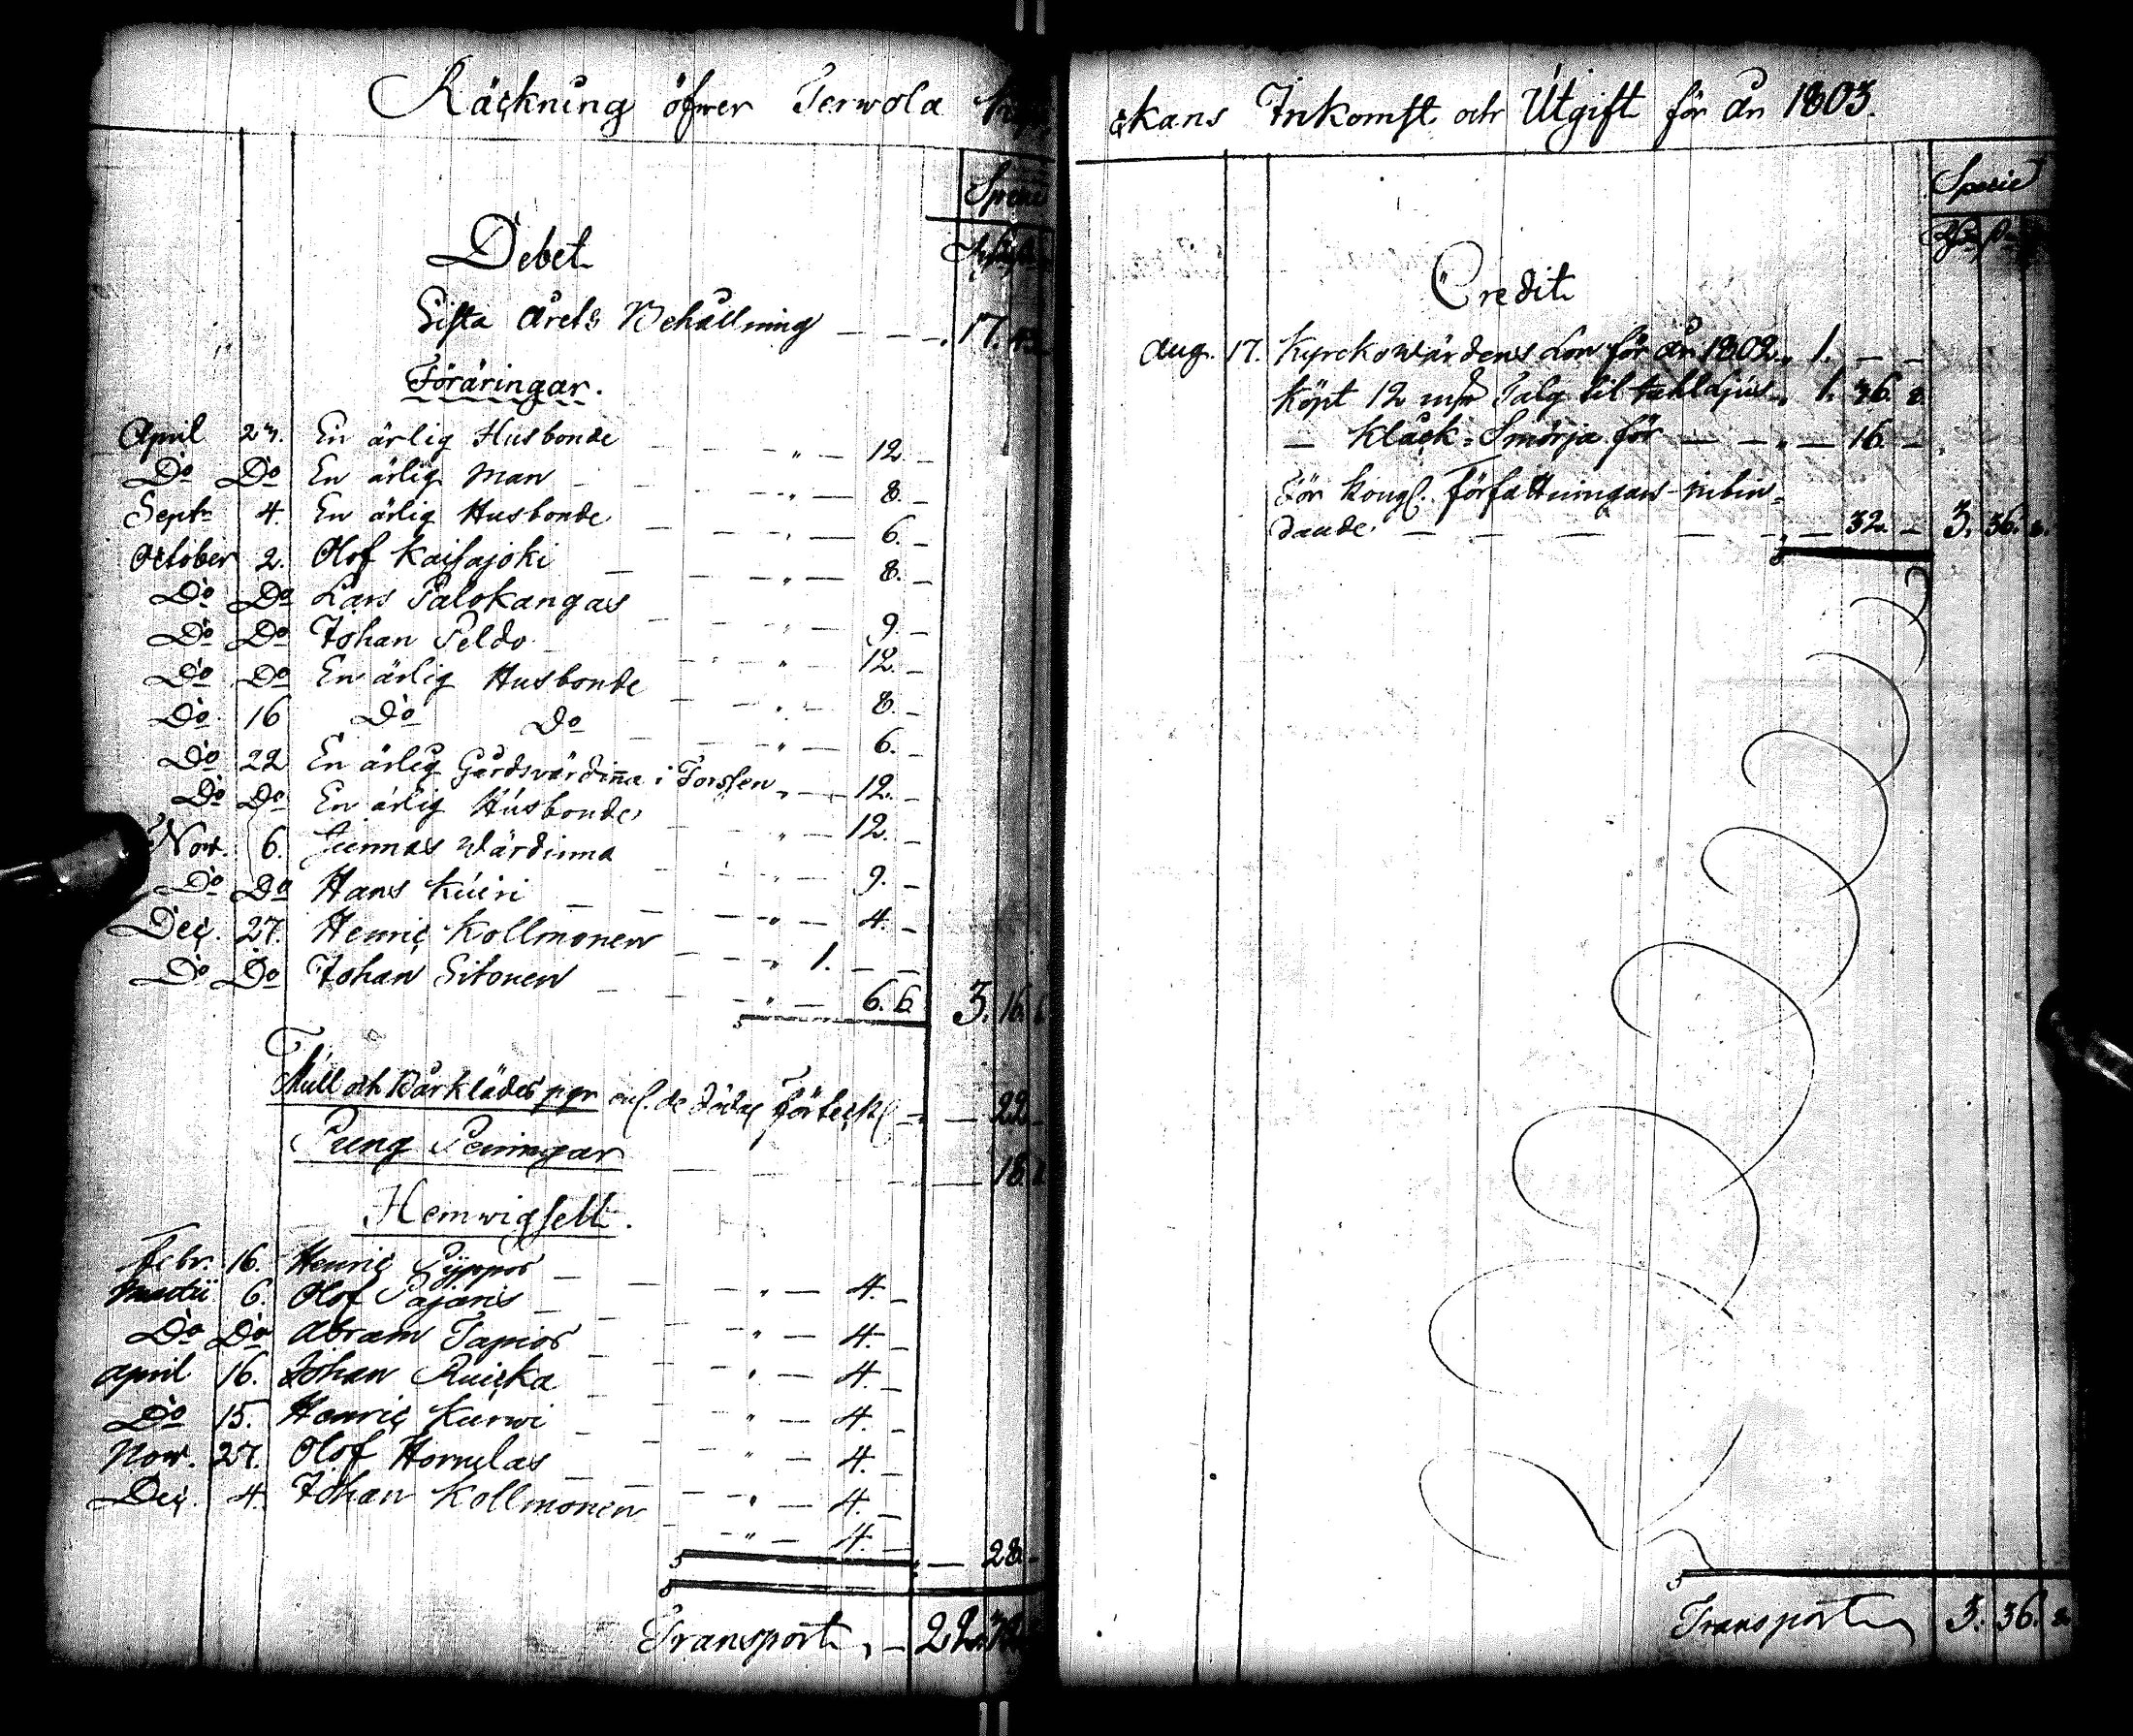 Räckning öfwer Terwola
Specie
Debet
Sista årets Behållning — — 17.
Föräringar.
April 23. En ärlig Husbonde — — „ — 12. —
Do Do En ärlig Man — — „ — 8. —
Septr 4. En ärlig Husbonde — — „ — 6. —
October 2. Olof Kaisajoki — — „ — 8. —
Do Do Lars Palokangas — — „ — 9. —
Do Do Johan Peldo — — „ — 12. —
Do Do En ärlig Husbonde — — „ — 8. —
Do 16 Do Do — — „ — 6. —
Do 22 En ärlig Gårdsvärdinna i Torssen „ — 12. —
Do Do En ärlig Husbonde — — „ — 12. —
Nov. 6. Junnas Wärdinna — — „ — 9. —
Do Do Hans Kuiri — — „ — 4. —
Dec. 27. Henric Kollmonen — — „ 1. — —
Do Do Johan Sitonen — — „ — 6. 6 3. 16.
Mull och Bårklädes pgr enl. de dödas förteckl — — 22 —
Pung Peningar — — — 18.
Hemwigsell.
Febr. 16. Henric Pyppos — — „ — 4. —
Martii 6. Olof Pajaris — — „ — 4. —
Do Do Abram Tapios — — „ — 4. —
April 16. Johan Ruicka — — „ — 4. —
Do 15. Henric Kurwi — — „ — 4. —
Nov. 27. Olof Hornilas — — „ — 4. —
Dec. 4. Johan Kollmonen — — „ — 4. — — 28. —
Transport, — 22.
ckans Inkomst och Utgift för år 1803.
Specie
Credit
Aug. 17. Kyrckowärdens Lön för år 1802 „ 1. — —
Köpt 12 Talg til „ 1. 36. 8.
— Klåck-Smörja för — — „ — 16. —
För Kongl. Författningars inbin-
dande — — — — „ — 32. — 3. 36. 8.
Transport 3. 36. 8.